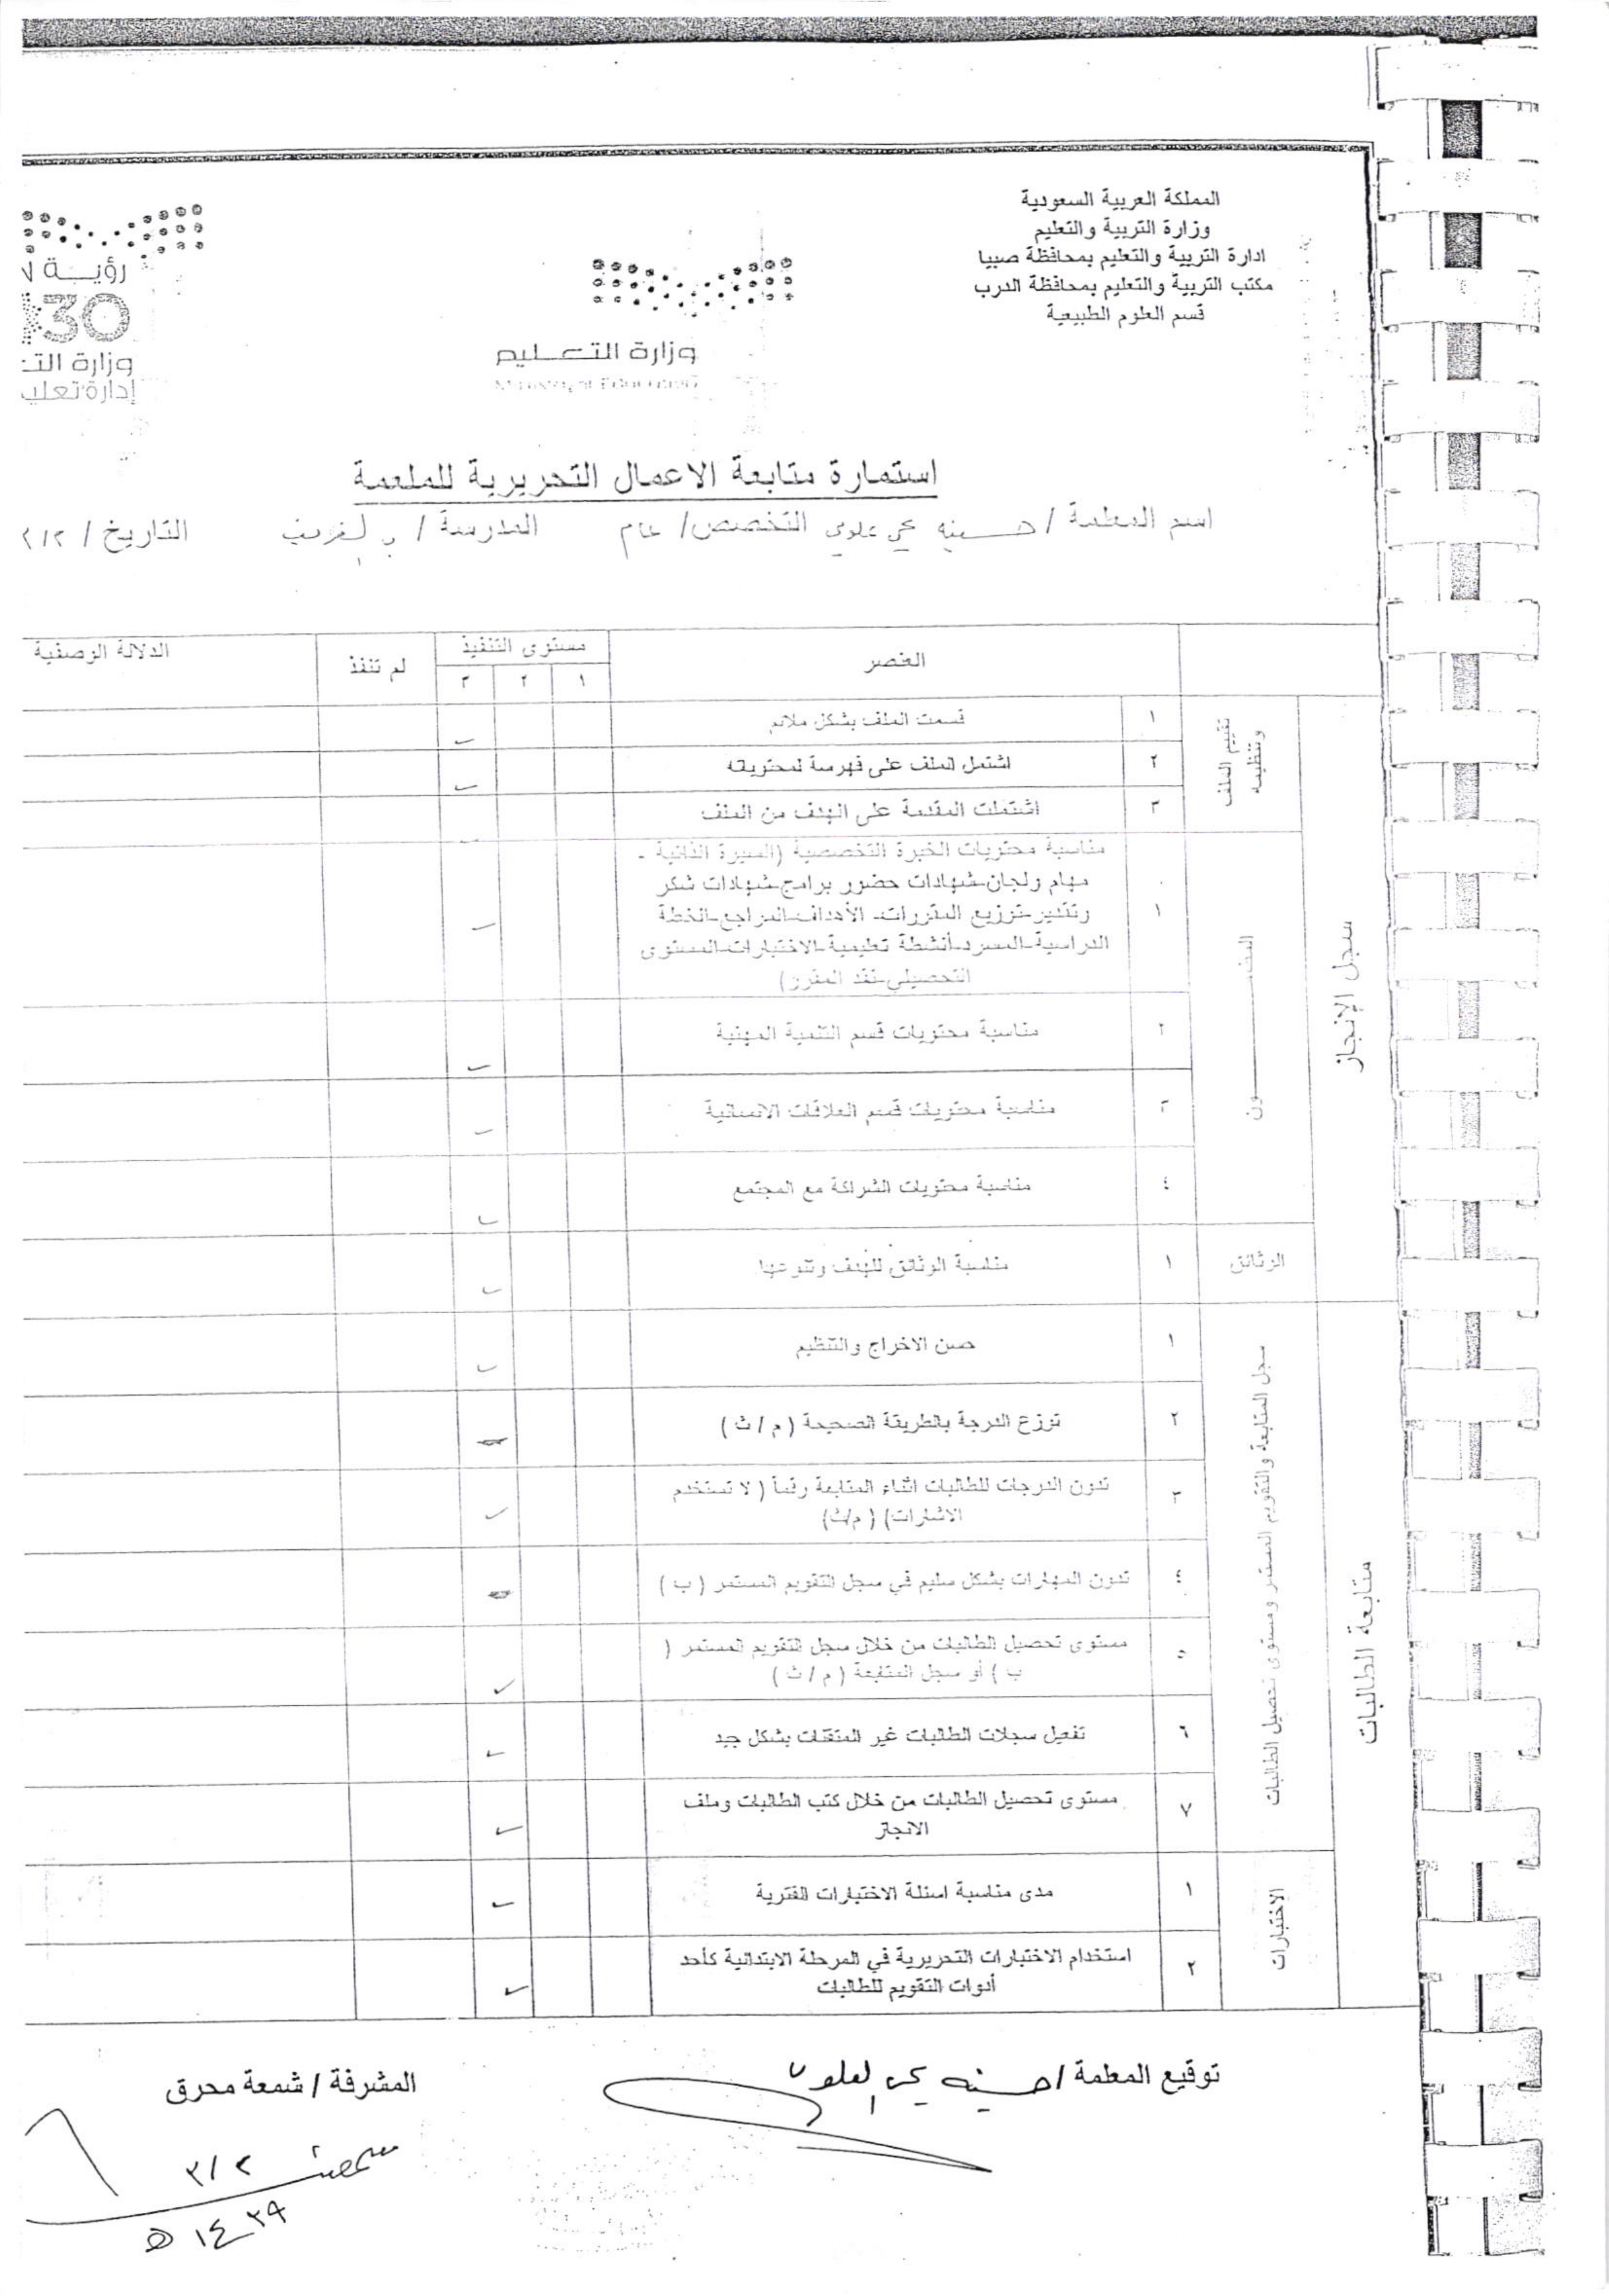 المملكة العربية السعودية
وزارة التربية والتعليم
ادارة التربية والتعليم بمحافظة صبيا
مكتب التربية والتعليم بمحافظة الدرب
قسم العلوم الطبيعية
وزارة التعليم
Ministry of Education
رؤيـــة
30
وزارة التـ
إدارة تعليـ
استمارة متابعة الاعمال التحريرية للملعمة
اسم المعلمة / حسينه يحي علوي التخصص / عام المدرسة / التاريخ / ٣/٢
العنصر مستوى التنفيذ لم تنفذ الدلالة الوصفية
١ ٢ ٣
سجل الإنجاز
تقييم الملف وتنظيمه
١ قسمت الملف بشكل ملائم
٢ اشتمل الملف على فهرسة لمحتوياته
٣ اشتملت المقدمة على الهدف من الملف
المضـــمون
١ مناسبة محتويات الخبرة التخصصية (السيرة الذاتية -
مهام ولجان-شهادات حضور برامج-شهادات شكر
وتقدير-توزيع المقررات- الأهداف-المراجع-الخطة
الدراسية-المسرد-أنشطة تعليمية-الاختبارات-المستوى
التحصيلي-نقد المقرر)
٢ مناسبة محتويات قسم التنمية المهنية
٣ مناسبة محتويات قسم العلاقات الانسانية
٤ مناسبة محتويات الشراكة مع المجتمع
الوثائق
١ مناسبة الوثائق للهدف وتنوعها
متابعة الطالبات
سجل المتابعة والتقويم المستمر ومستوى تحصيل الطالبات
١ حسن الاخراج والتنظيم
٢ توزع الدرجة بالطريقة الصحيحة ( م / ث )
٣ تدون الدرجات للطالبات اثناء المتابعة رقماً ( لا تستخدم
الاشارات) ( م/ث)
٤ تدون المهارات بشكل سليم في سجل التقويم المستمر ( ب )
٥ مستوى تحصيل الطالبات من خلال سجل التقويم المستمر (
ب ) أو سجل المتابعة ( م / ث )
٦ تفعيل سجلات الطالبات غير المتقنات بشكل جيد
٧ مستوى تحصيل الطالبات من خلال كتب الطالبات وملف
الانجاز
الإختبارات
١ مدى مناسبة اسئلة الاختبارات الفترية
٢ استخدام الاختبارات التحريرية في المرحلة الابتدائية كأحد
أدوات التقويم للطالبات
توقيع المعلمة / حسينه يحي العلوي
المشرفة / شمعة محرق
شمعة ٣/٢
١٤٣٩ هـ